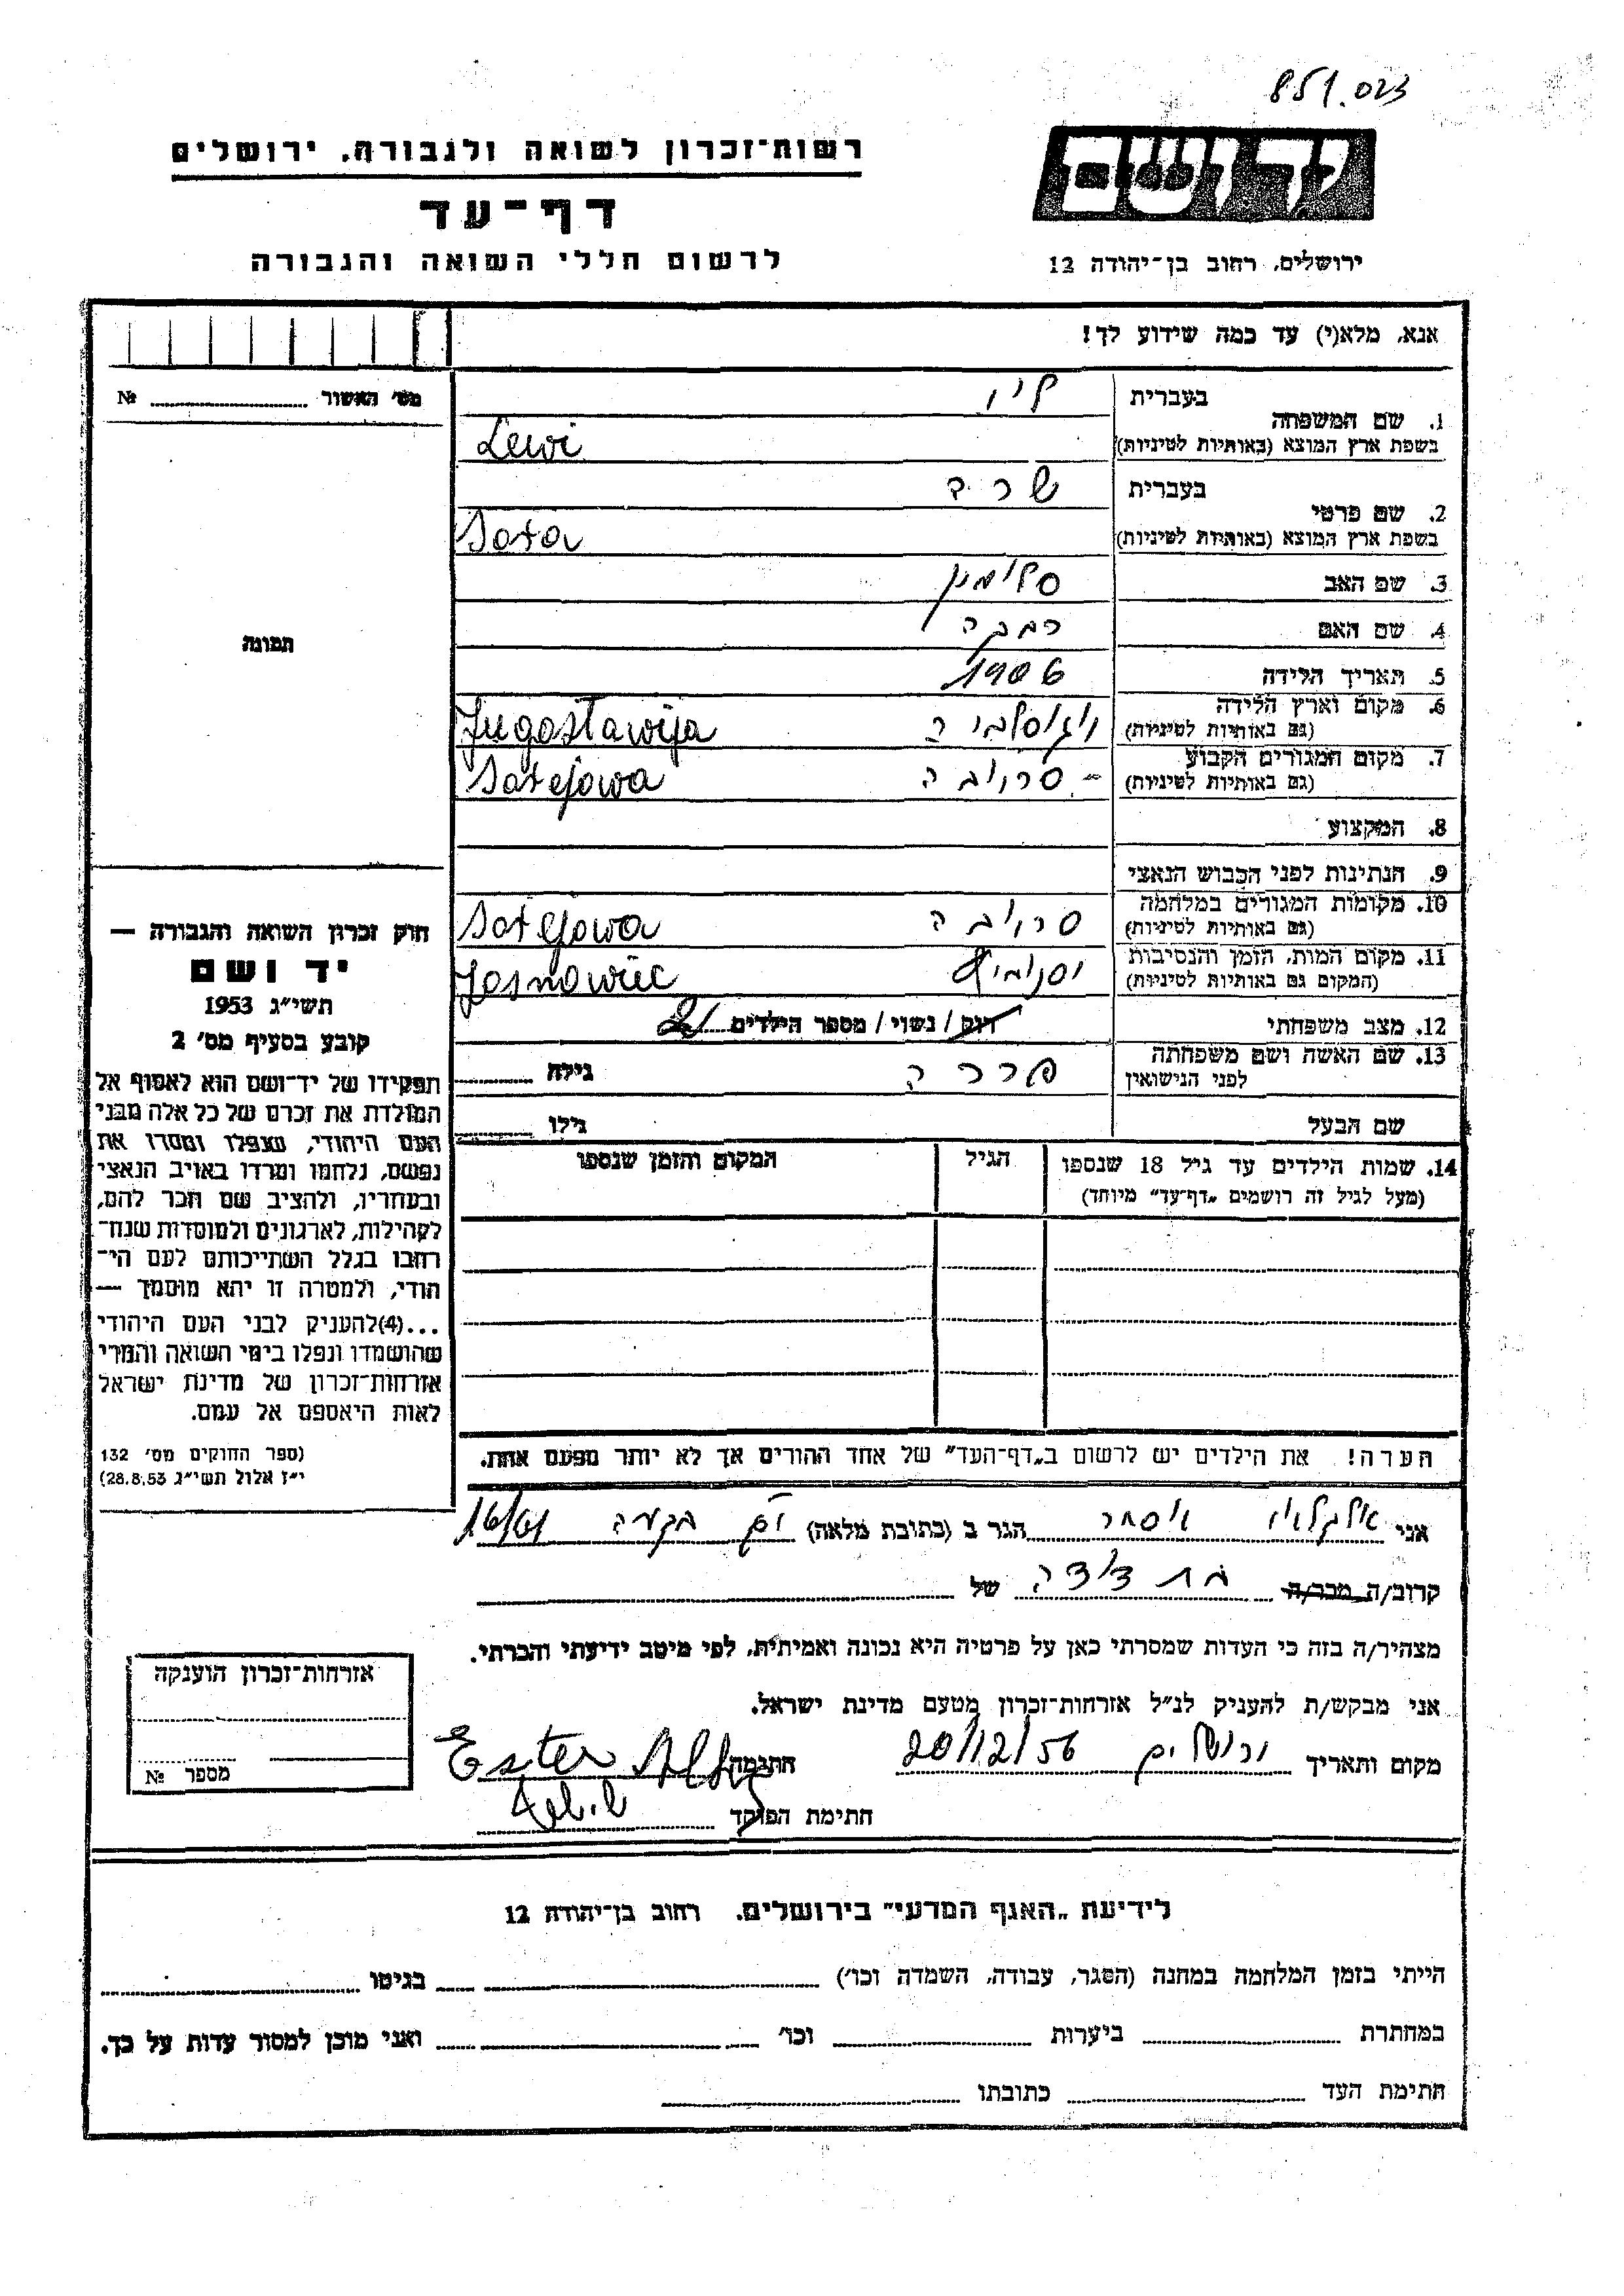 851.023
רשות־זכרון לשואה ולגבורה, ירושלים
דף־עד
לרשום חללי השואה והגבורה
ידושם
ירושלים, רחוב בן־יהודה 12
אנא, מלא(י) עד כמה שידוע לך!
מס׳ האשור №
תמונה
1. שם המשפחה
בעברית לוי
בשפת ארץ המוצא (באותיות לטיניות) Lewi
2. שם פרטי
בעברית שרה
בשפת ארץ המוצא (באותיות לטיניות) Sara
3. שם האב סלומון
4. שם האם רבקה
5. תאריך הלידה 1906
6. מקום וארץ הלידה יוגוסלביה Jugoslawija
(גם באותיות לטיניות)
7. מקום המגורים הקבוע סריובה Sarejowa
(גם באותיות לטיניות)
8. המקצוע
9. הנתינות לפני הכבוש הנאצי
10. מקומות המגורים במלחמה סריובה Sarejowa
(גם באותיות לטיניות)
11. מקום המות, הזמן והנסיבות Jasnowiec
(המקום גם באותיות לטיניות)
12. מצב משפחתי רווק / נשוי / מספר הילדים 2
13. שם האשה ושם משפחתה פררה גילה
לפני הנישואין
שם הבעל גילו
14. שמות הילדים עד גיל 18 שנספו הגיל המקום והזמן שנספו
(מעל לגיל זה רושמים „דף־עד״ מיוחד)
הערה! את הילדים יש לרשום ב„דף־העד״ של אחד ההורים אך לא יותר מפעם אחת.
חוק זכרון השואה והגבורה —
יד ושם
תשי״ג 1953
קובע בסעיף מס׳ 2
תפקידו של יד־ושם הוא לאסוף אל
המולדת את זכרם של כל אלה מבני
העם היהודי, שנפלו ומסרו את
נפשם, נלחמו ומרדו באויב הנאצי
ובעוזריו, ולהציב שם וזכר להם,
לקהילות, לארגונים ולמוסדות שנח־
רבו בגלל השתייכותם לעם הי־
הודי, ולמטרה זו יהא מוסמך —
...(4)להעניק לבני העם היהודי
שהושמדו ונפלו בימי השואה והמרי
אזרחות־זכרון של מדינת ישראל
לאות היאספם אל עמם.
(ספר החוקים מס׳ 132
י״ז אלול תשי״ג 28.8.53)
אני אלקלאי אסתר הגר ב (כתובת מלאה)
קרוב/ה מכר/ה בת דודה של
מצהיר/ה בזה כי העדות שמסרתי כאן על פרטיה היא נכונה ואמיתית, לפי מיטב ידיעתי והכרתי.
אני מבקש/ת להעניק לנ״ל אזרחות־זכרון מטעם מדינת ישראל.
מקום ותאריך ירושלים 20/12/56 חתימה Ester
חתימת הפוקד
אזרחות־זכרון הוענקה
מספר №
לידיעת „האגף המדעי״ בירושלים. רחוב בן־יהודה 12
הייתי בזמן המלחמה במחנה (הסגר, עבודה, השמדה וכו׳) בגיטו
במחתרת ביערות וכו׳ ואני מוכן למסור עדות על כך.
חתימת העד כתובתו